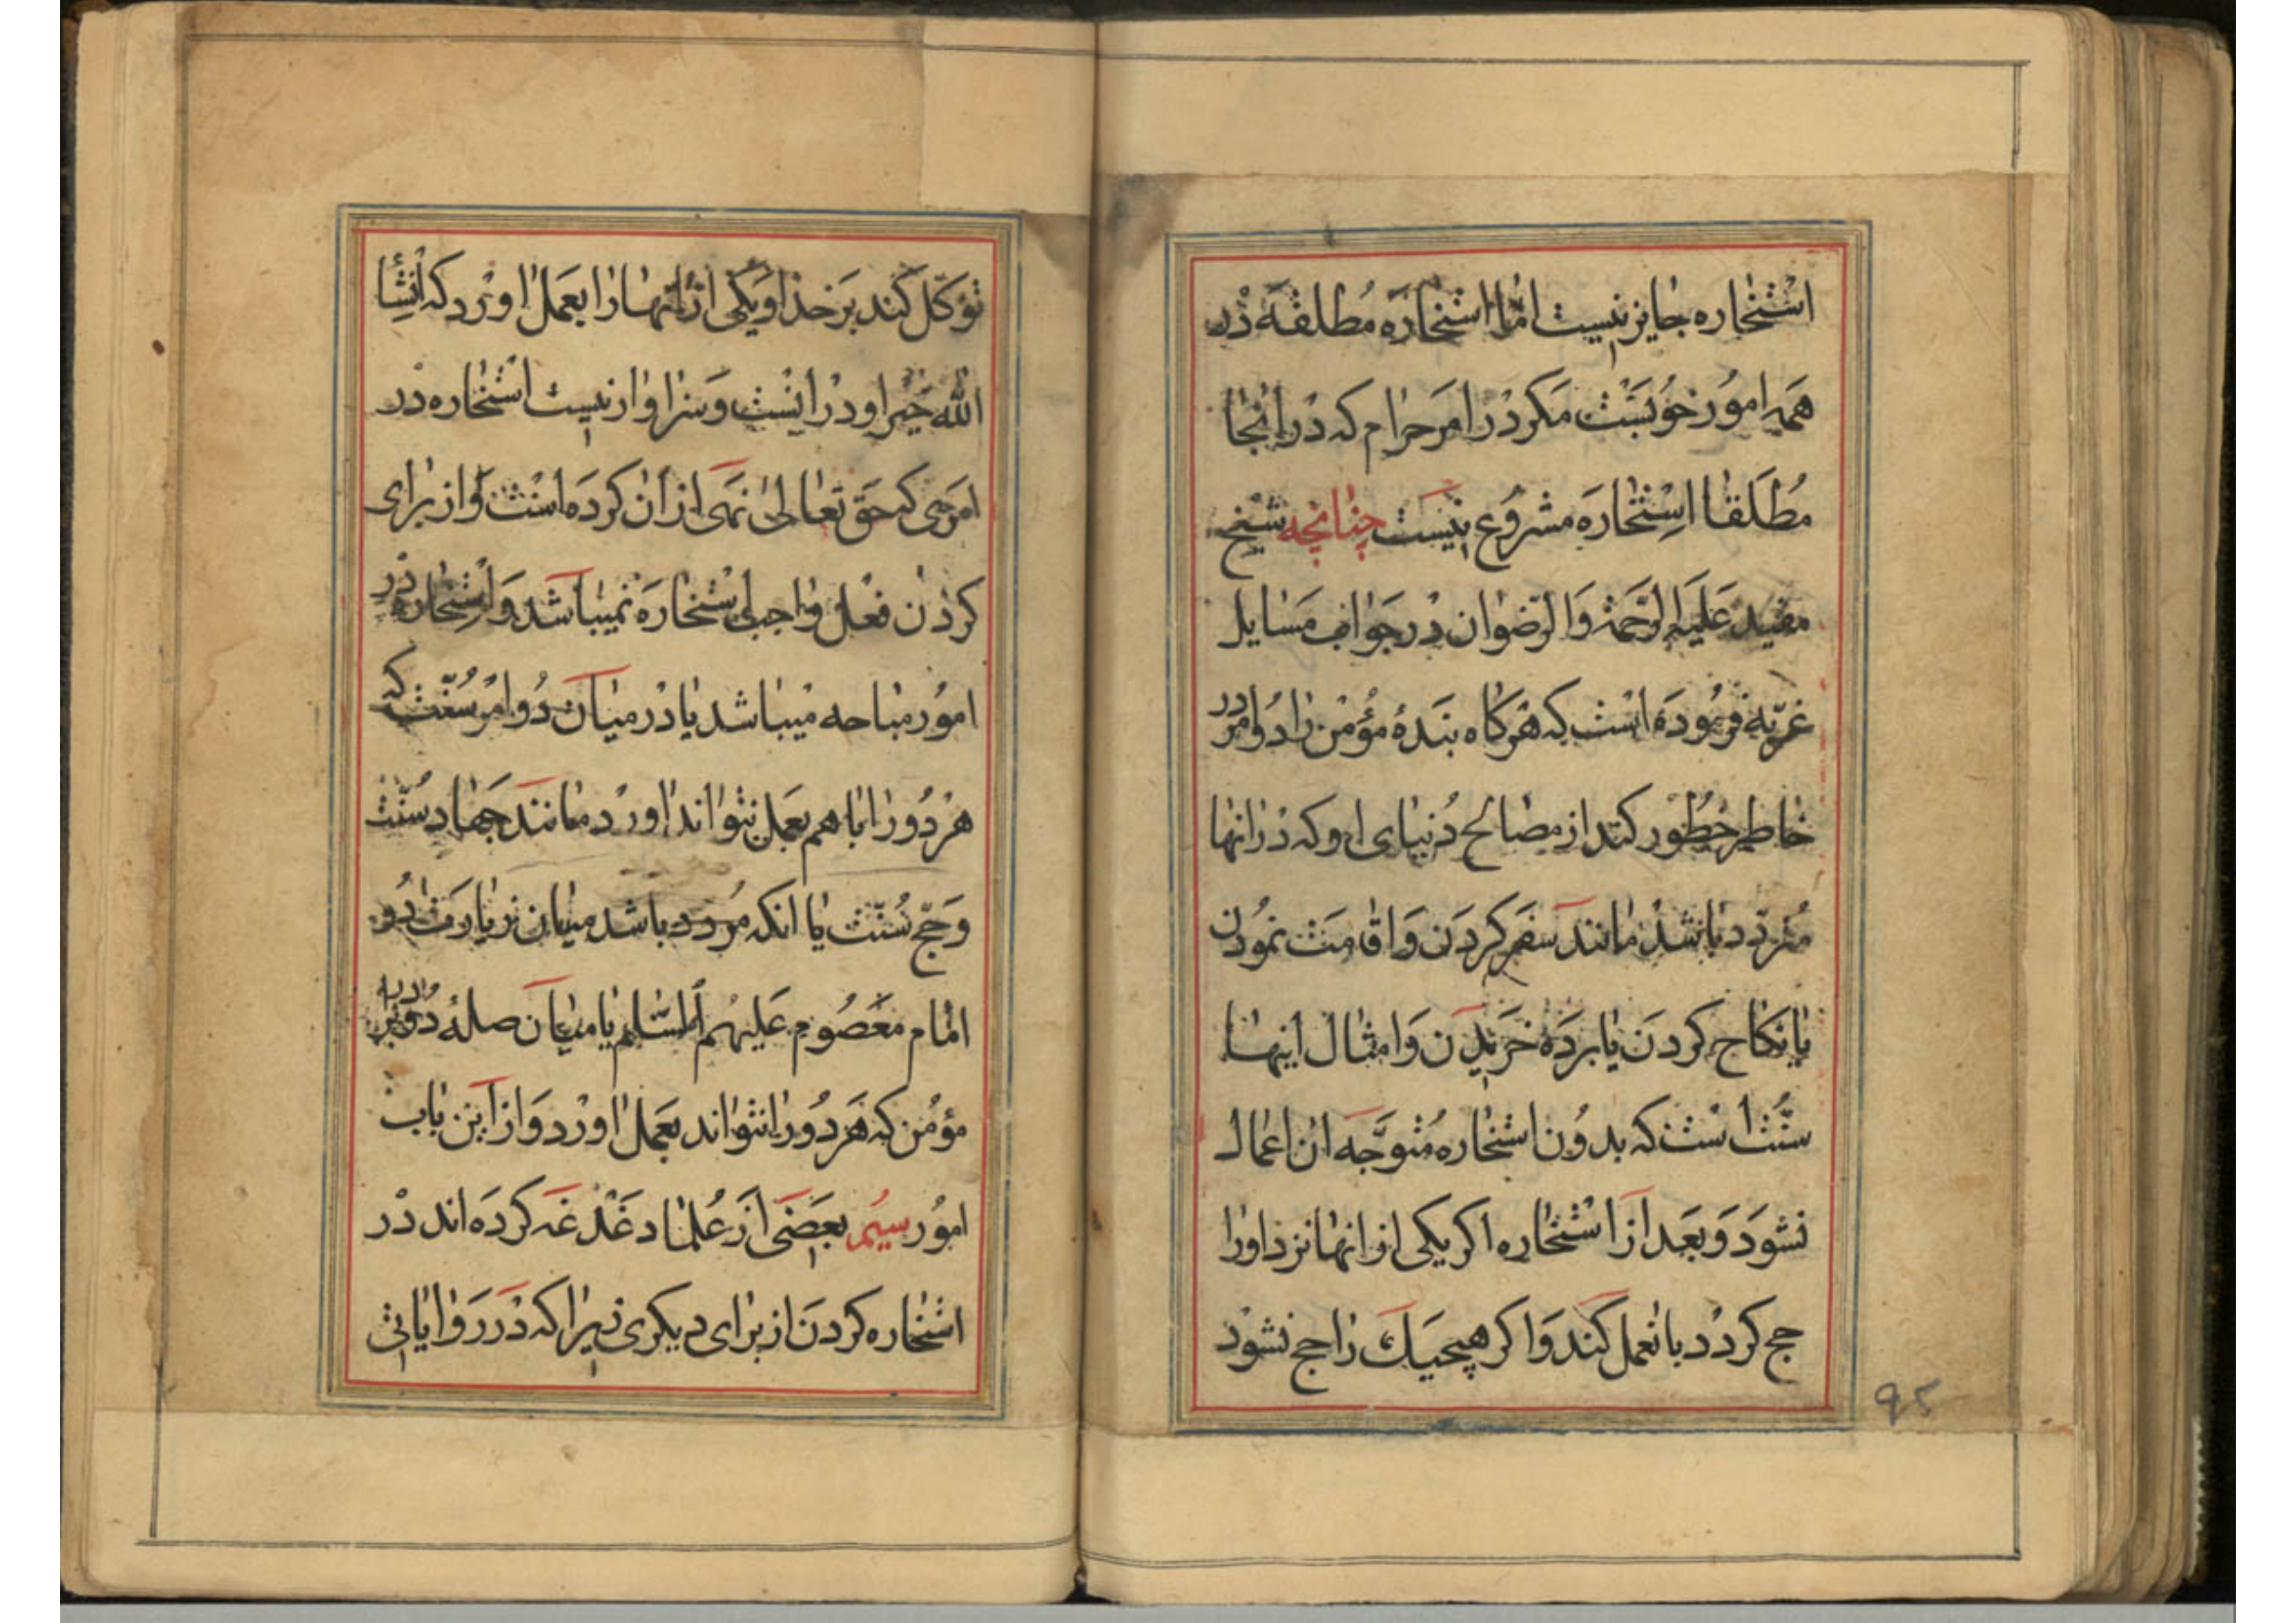 استخاره جایز نیست امّا استخاره مُطلقه در
همه امور خوبست مکر در امر حرام که در انجا
مُطلقا استخاره مشروع نیست چنانچه شیخ
مفید علیه الرحمة والرّضوان در جواب مسایل
غریّه فرموده است که هرکاه بندۀ مؤمن را دو امر در
خاطر خطور کند از مصالح دنیای او که در انها
متردّد باشد مانند سفر کردن و اقامت نمودن
یا نکاح کردن یا برده خریدن و امثال اینها
سنّت است که بدون استخاره متوجّه ان اعمال
نشود و بعد از استخاره اکر یکی از انها نزد او را
جح کردد بان عمل کند و اکر هیچیک راجح نشود
توکّل کند بر خدا و یکی از انها را بعمل اورد که انشا
الله خیر او در انست و سزاوار نیست استخاره در
امری که حق تعالی نهی از ان کرده است و از برای
کردن فعل واجبی استخاره نمیباشد و استخاره در
امور مباحه میباشد یا در میان دو امر سنّت که
هر دو را با هم بعمل نتواند اورد مانند جهاد سنّت
و حجّ سنّت یا انکه مردد باشد میان زیارت دو
امام معصوم علیهم السّلم یا میان صلۀ دو برادر
مؤمن که هر دو را نتواند بعمل اورد و از این باب
امور سیم بعضی از علما دغدغه کرده اند در
استخاره کردن از برای دیکری زیرا که در روایاتی
95